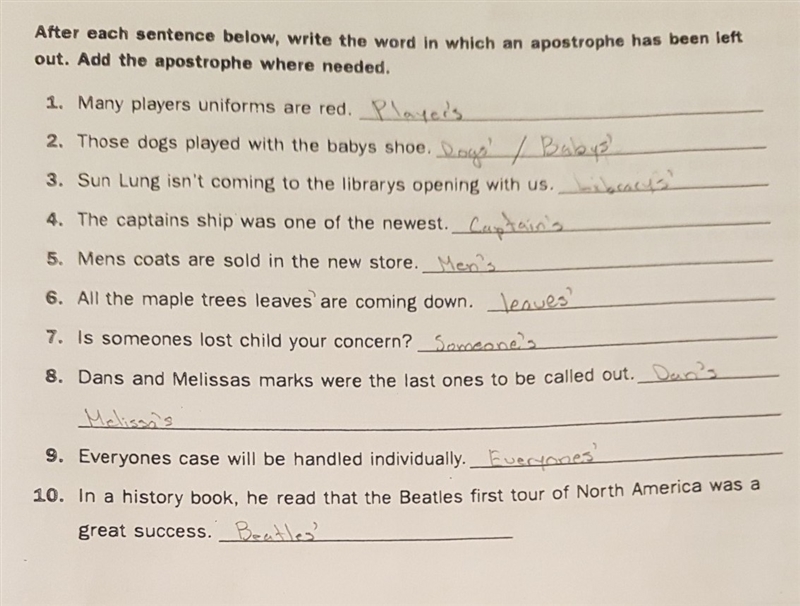 After each sentence below, write the word in which an apostrophe has been left
out. Add the apostrophe where needed.
1. Many players uniforms are red. Player's
2. Those dogs played with the babys shoe. Dogs' / Babys'
3. Sun Lung isn't coming to the librarys opening with us. Librarys'
4. The captains ship was one of the newest. Captain's
5. Mens coats are sold in the new store. Men's
6. All the maple trees leaves' are coming down. leaves'
7. Is someones lost child your concern? Someone's
8. Dans and Melissas marks were the last ones to be called out. Dan's
Melissa's
9. Everyones case will be handled individually. Everyones'
10. In a history book, he read that the Beatles first tour of North America was a
great success. Beatles'